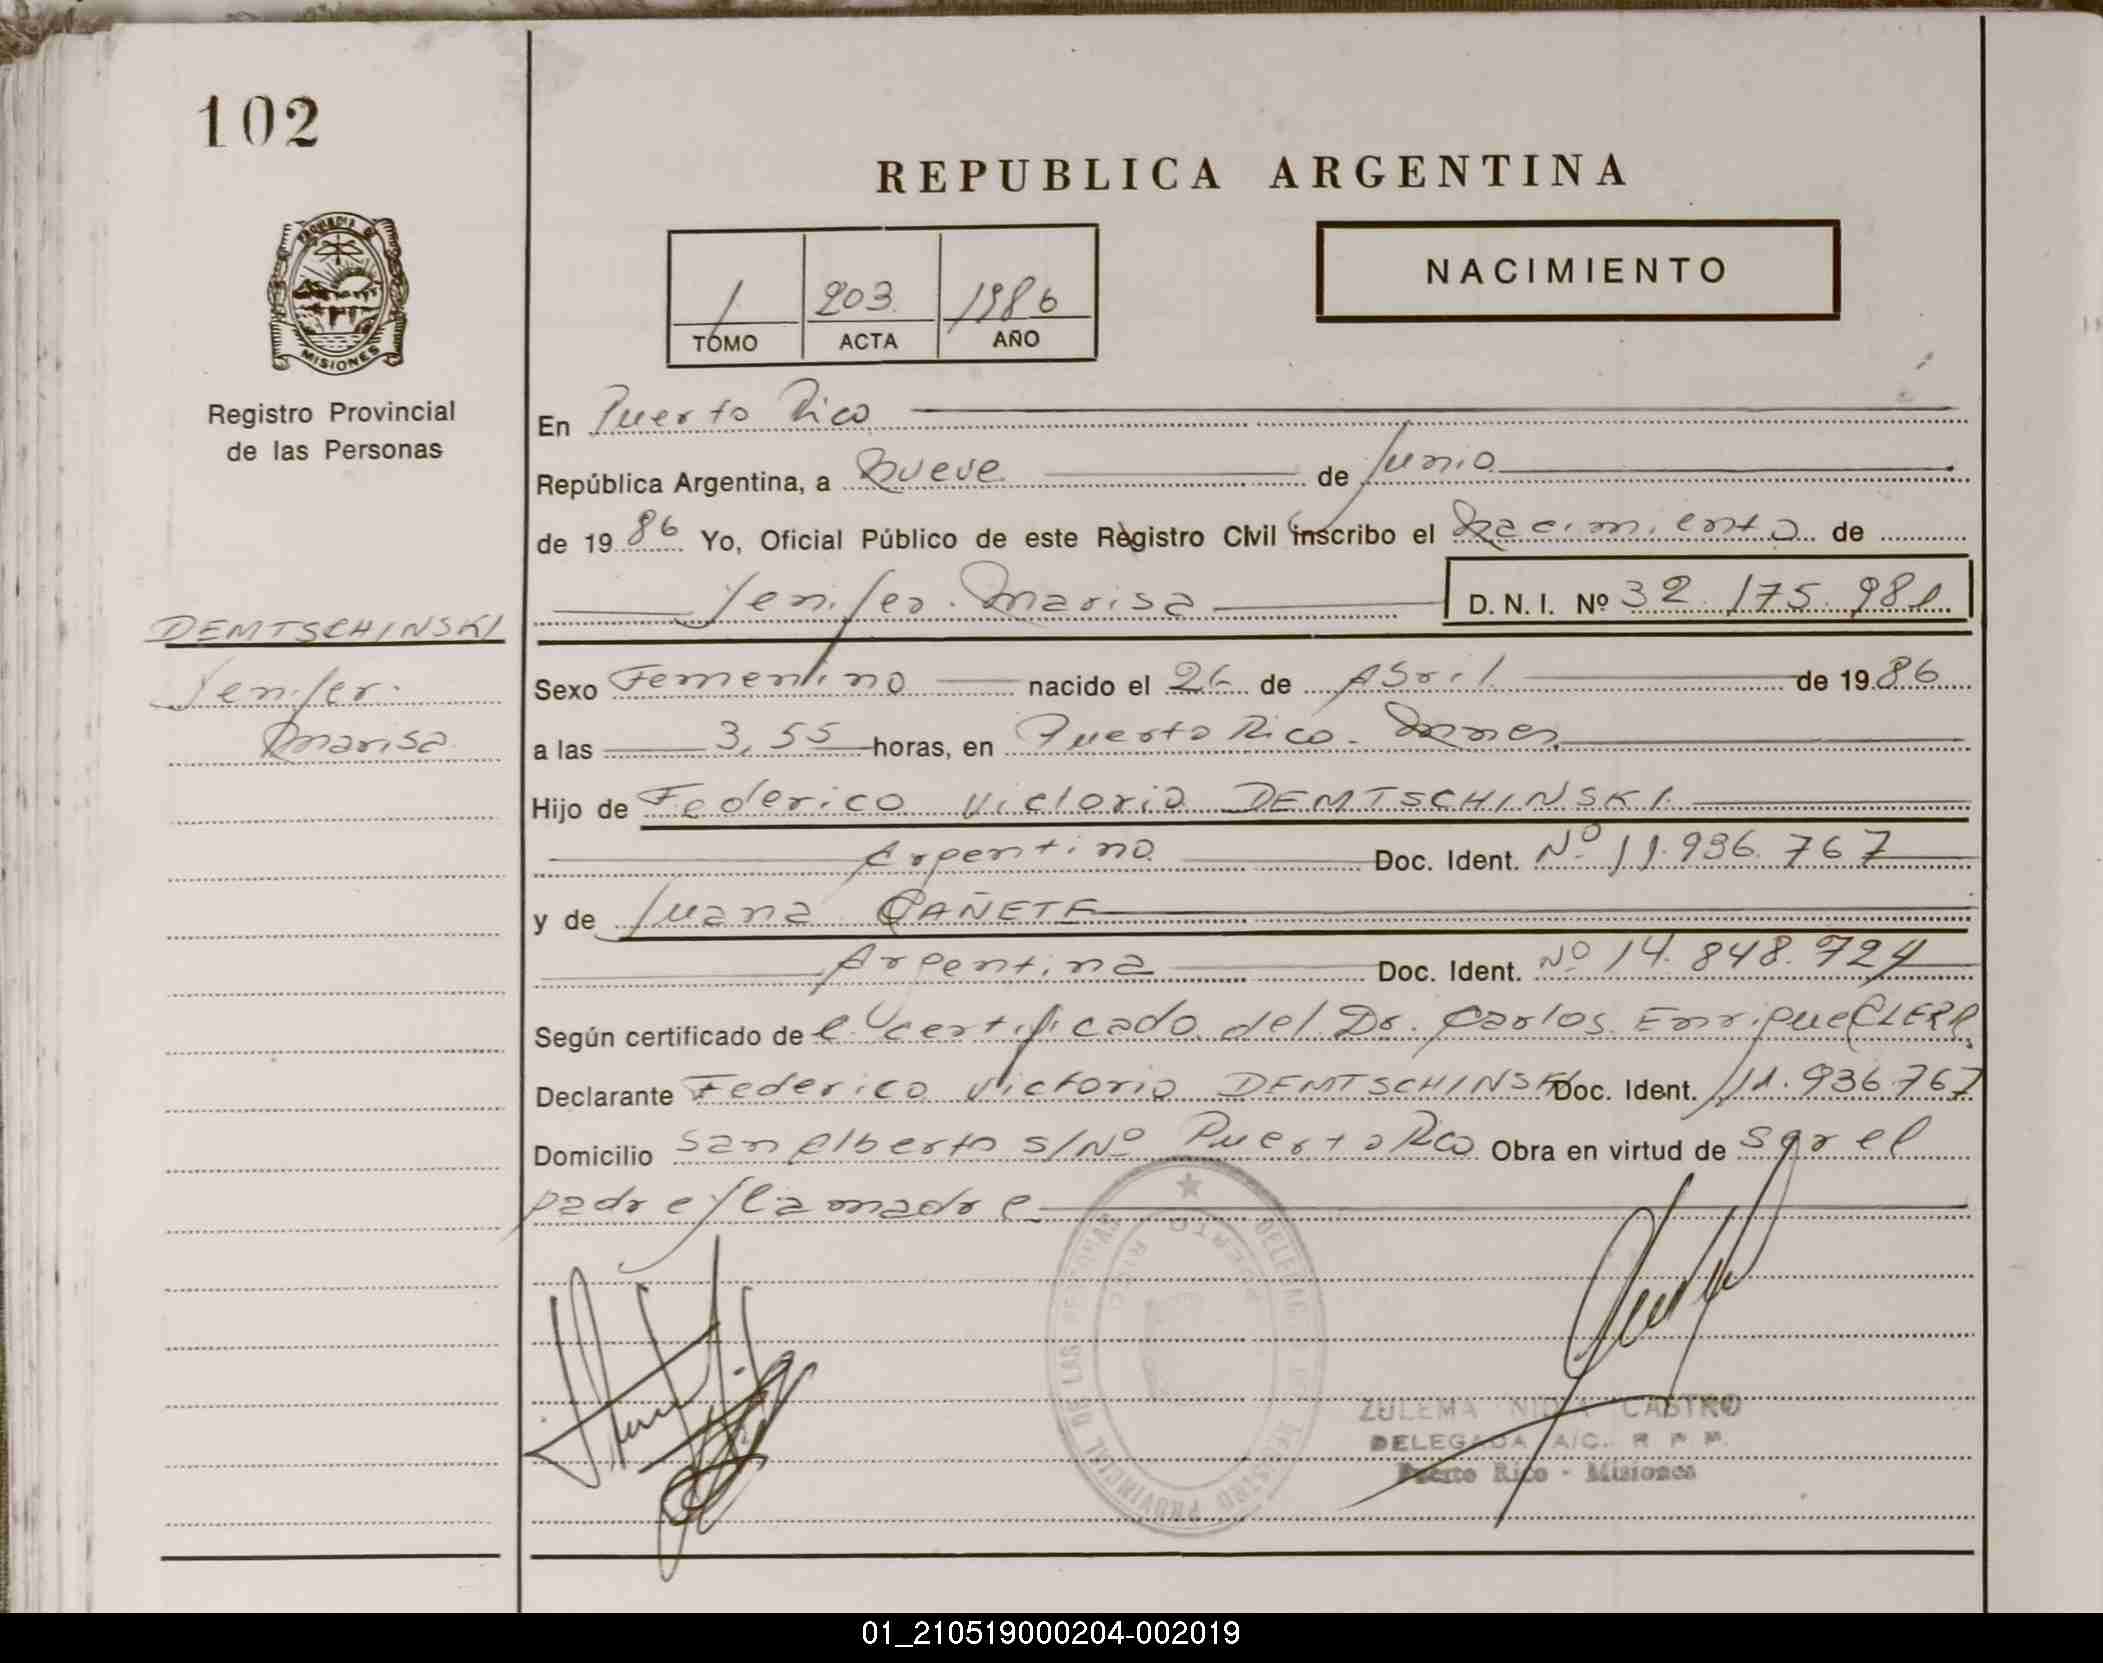 102
REPUBLICA ARGENTINA
NACIMIENTO
1 203 1986
TOMO ACTA AÑO
PROVINCIA DE
MISIONES
Registro Provincial
de las Personas
En Puerto Rico
República Argentina, a Nueve de Junio
de 1986 Yo, Oficial Público de este Registro Civil inscribo el Nacimiento de
Yenifer Marisa D. N. I. Nº 32.175.981
DEMTSCHINSKI
Yenifer
Marisa
Sexo Femenino nacido el 26 de Abril de 1986
a las 3,55 horas, en Puerto Rico - Mnes.
Hijo de Federico Victorio DEMTSCHINSKI
Argentino Doc. Ident. Nº 11.936.767
y de Juana CAÑETE
Argentina Doc. Ident. Nº 14.848.724
Según certificado de el certificado del Dr. Carlos Enrique CLERR
Declarante Federico Victorio DEMTSCHINSKI Doc. Ident. 11.936.767
Domicilio San Alberto s/Nº Puerto Rico Obra en virtud de ser el
padre y la madre
DELEGACION DE REGISTRO PROVINCIAL DE LAS PERSONAS
PUERTO RICO
ZULEMA NIDIA CASTRO
DELEGADA A/C. R P P.
Puerto Rico - Misiones
01_210519000204-002019